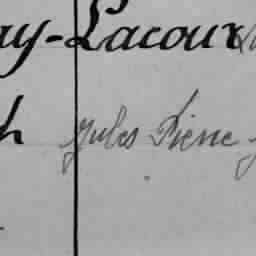 ay-Lacour
h Jules Pierre